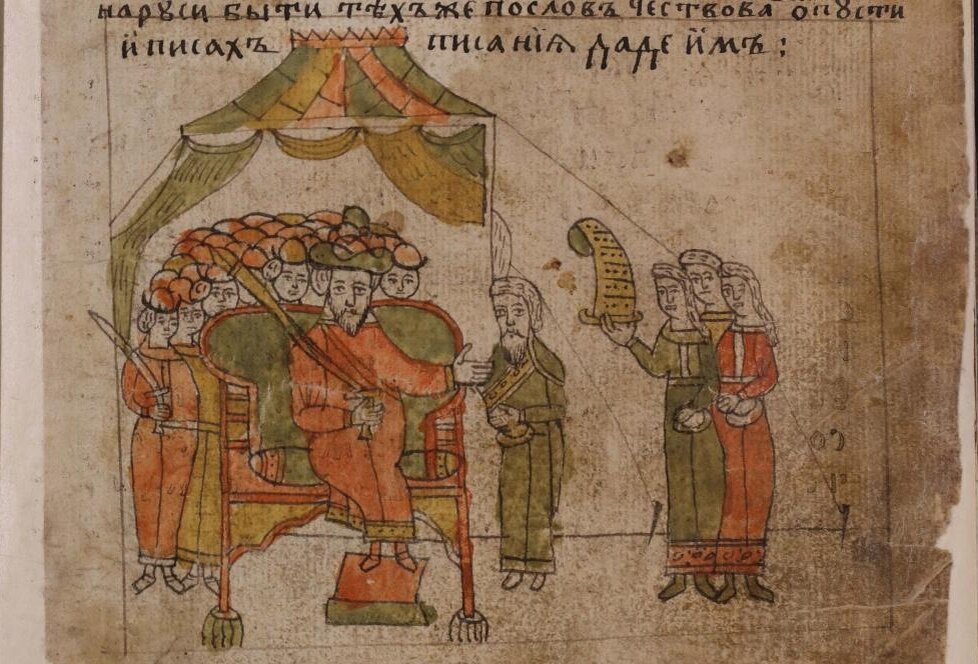 на руси быти тѣхъ же пословъ чествова опусти
и писахъ писанїя даде имъ: